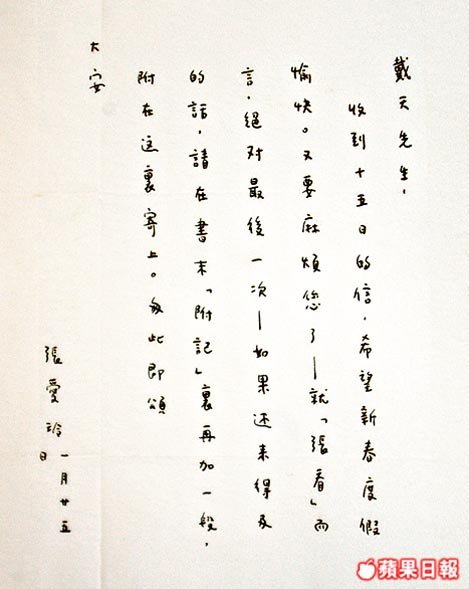 戴天先生，
收到十五日的信，希望新春度假
愉快。又要麻煩您了—就「張看」而
言，絕对最後一次—如果还来得及
的話，請在書末「附記」裏再加一段，
附在这裏寄上。匆此即頌
大安
張愛玲 一月廿五
日
蘋果日報